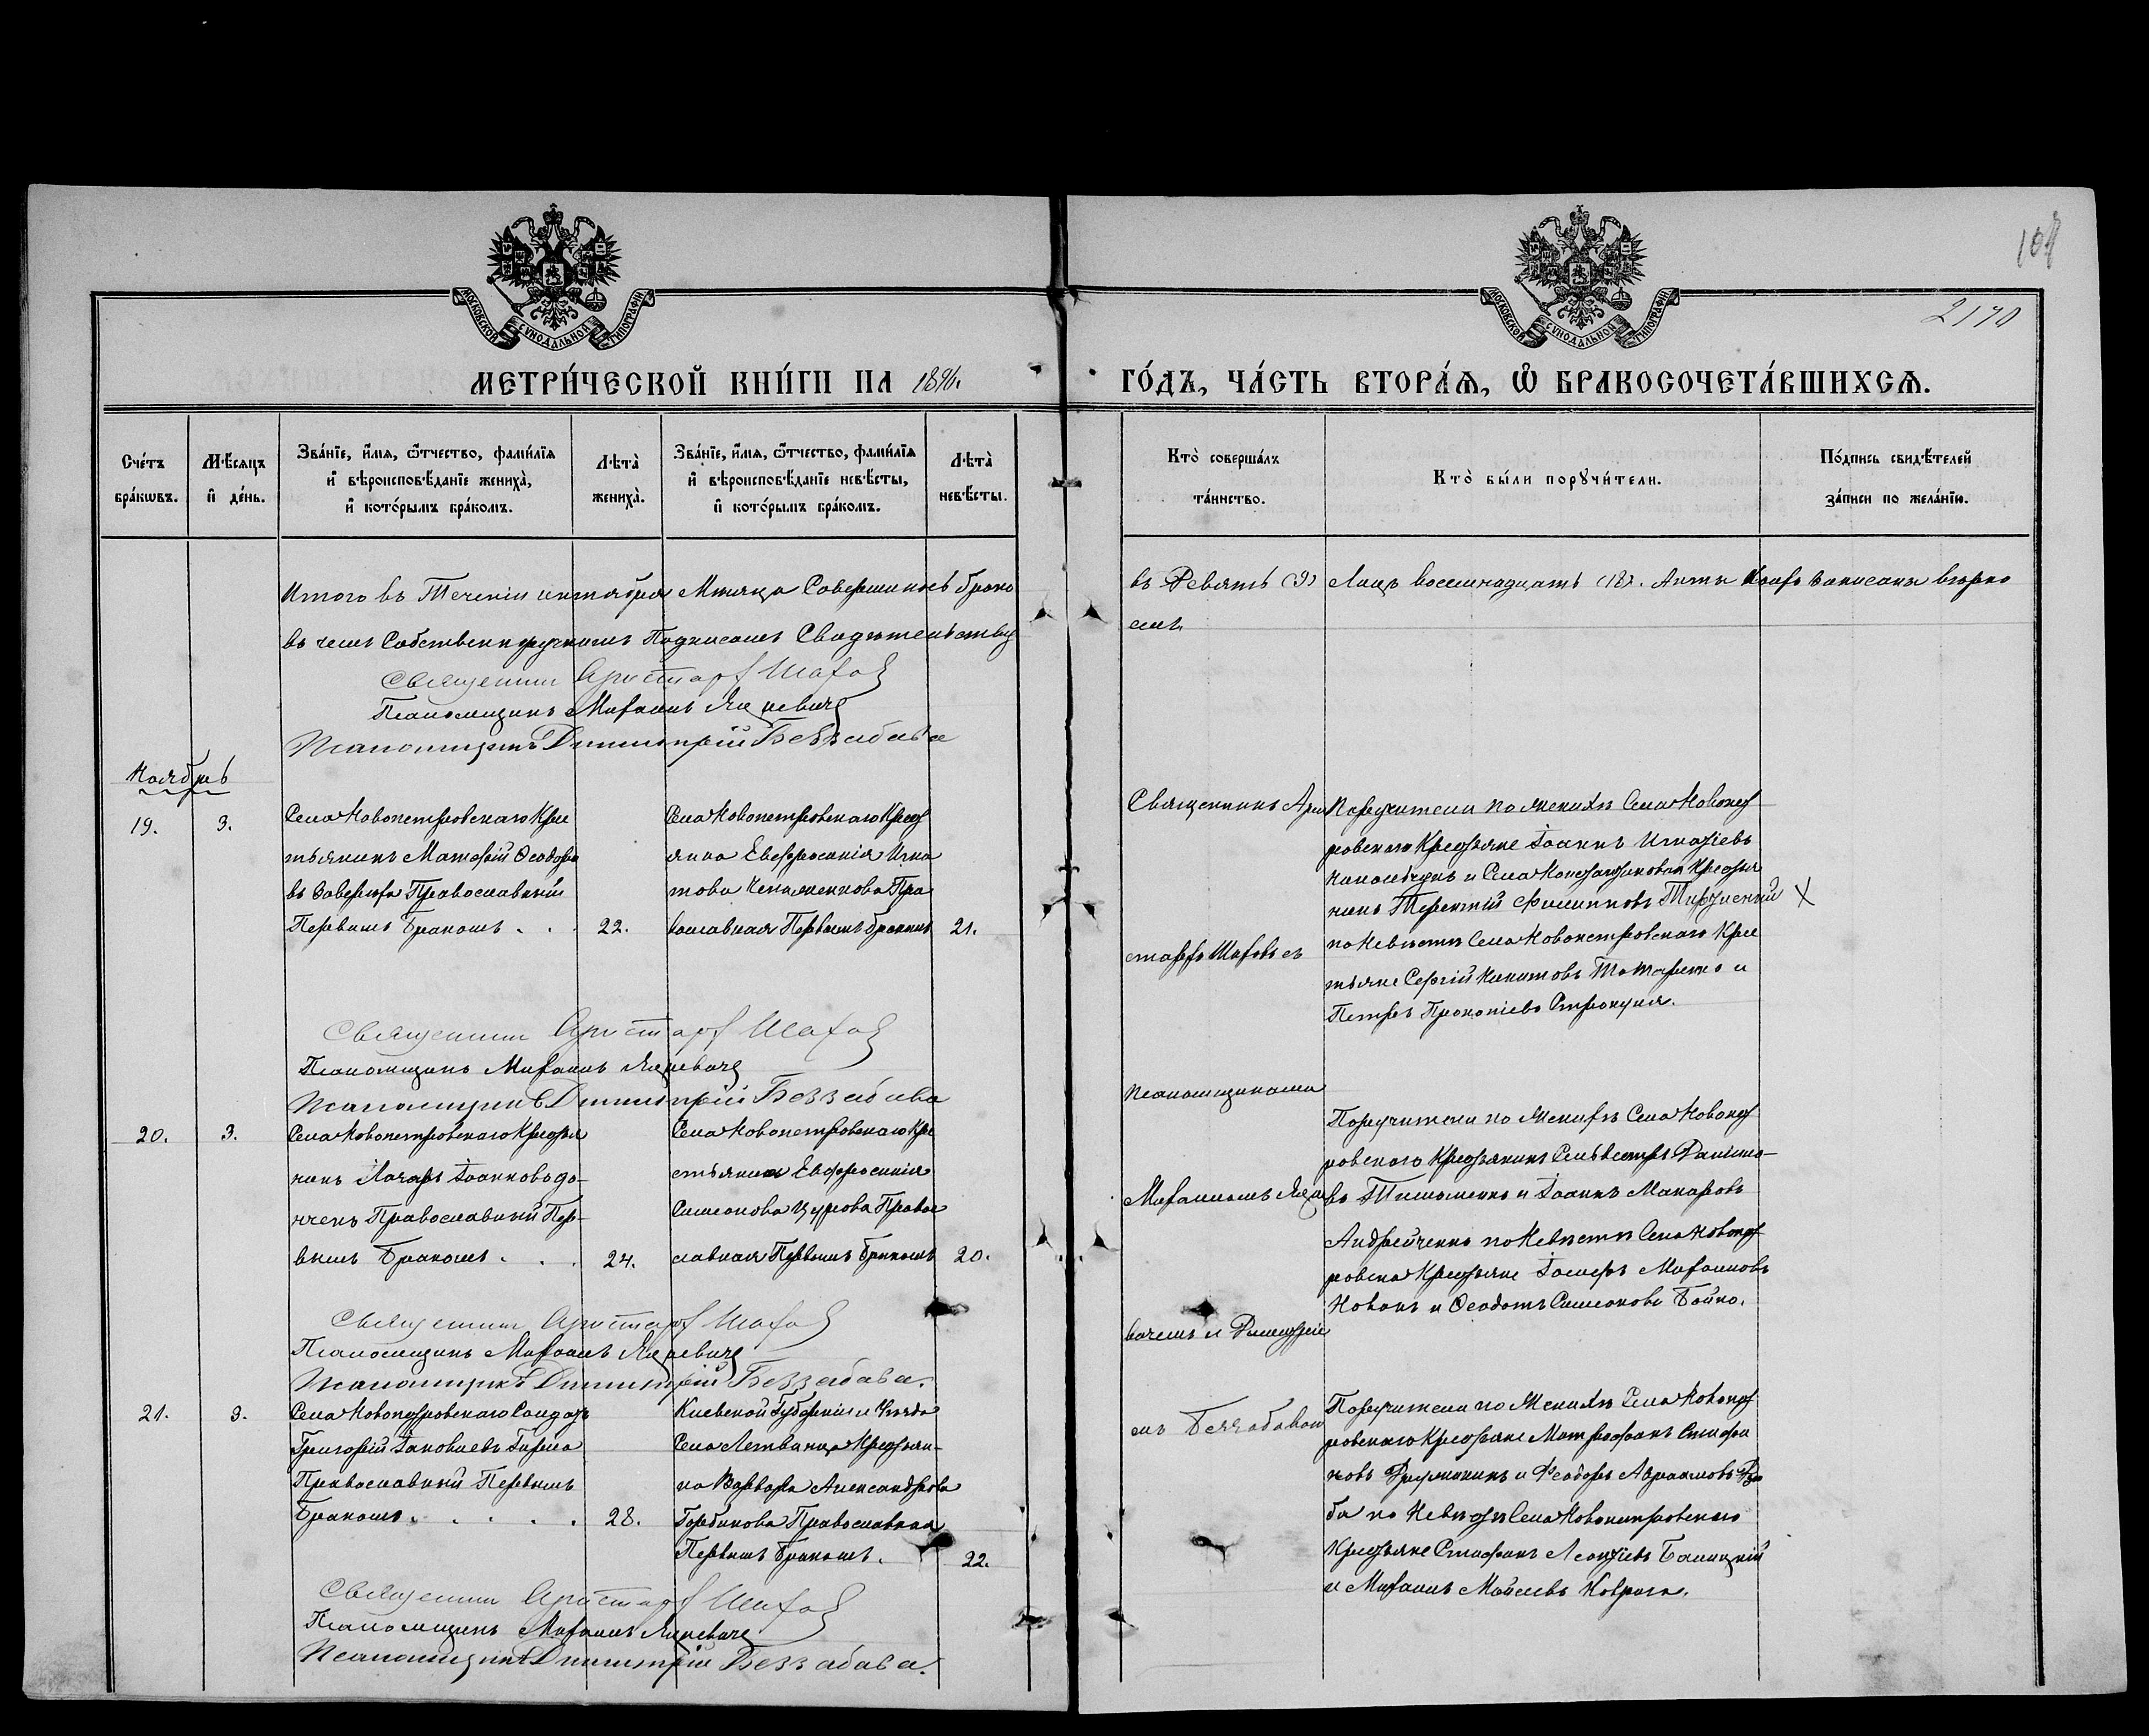 108
2170
МОСКОВСКОЙ СѴНОДАЛЬНОЙ ТИПОГРАФІИ
МОСКОВСКОЙ СѴНОДАЛЬНОЙ ТИПОГРАФІИ
МЕТРИ́ЧЕСКОЙ КНИ́ГИ НА 1896.
ГО́ДЪ, ЧА́СТЬ ВТОРА́Ѧ, Ѽ БРАКОСОЧЕТА́ВШИХСѦ.
Сче́тъ
бра́кѡвъ.
Мѣ́сяцъ
и҆ де́нь.
Зва́нїе, и҆́мѧ, ѻ҆́тчество, фами́лїѧ
и҆ вѣроисповѣ́данїе жениха̀,
и҆ кото́рымъ бра́комъ.
Лѣта̀
жениха̀.
Зва́нїе, и҆́мѧ, ѻ҆́тчество, фами́лїѧ
и҆ вѣроисповѣ́данїе невѣ́сты,
и҆ кото́рымъ бра́комъ.
Лѣта̀
невѣ́сты.
Кто̀ соверша́лъ
та́инство.
Кто̀ бы́ли порꙋчи́тели.
По́дпись свидѣ́телей
за́писи по жела́нїю.
Итого въ Теченіи октября Мѣяца Совершилось брако
въ Девять (9) Лицъ восемнадцать (18). Акты коихъ записаны вѣрно
въ чемъ Собственноручнымъ Подписомъ Свидѣтельству
емъ
Священникъ Аристархъ Шаховъ
Псаломщикъ Михаилъ Яцкевичъ
Псаломщикъ Димитрій Беззабава
Ноябрь
19. 3.
Села Новопетровскаго Крес
тьянинъ Матфій Ѳеодоро
въ Заверюха Православный
Первымъ Бракомъ . . 22.
Села Новопетровскаго Крест
янка Евфросинія Игна
това Православная Первымъ бракомъ 21.
Священникъ Ари
стархъ Шаховъ съ
Поручители по Женихѣ Села Новопет
ровскаго Крестьяне Іоаннъ Игнатіевъ
и Села Константиновки Крестья
нинъ Терентій Филипповъ
по Невѣстѣ Села Новопетровскаго Крес
тьяне Сергій Никитовъ Татаренко и
Петръ Прокопіевъ
Священникъ Аристархъ Шаховъ
Псаломщикъ Михаилъ Яцкевичъ
Псаломщикъ Димитрій Беззабава
псаломщиками
20. 3.
Села Новопетровскаго Крестья
нинъ Лазарь Іоанновъ
Православный Пер-
вымъ Бракомъ . . . 24.
Села Новопетровскаго Кре
стьянка Евфросинія
Симеонова Цурова Право
славная Первымъ бракомъ 20.
Михаиломъ Яцке
Поручители по Женихѣ Села Новопет
ровскаго Крестьянинъ Сильвестръ Данило-
въ Тимошенко и Іоаннъ Макаровъ
Андрейченко по Невѣстѣ Села Новопет
ровска Крестьяне Іосифъ Михаиловъ
Новакъ и Ѳеодотъ Симеоновъ Бойко.
Священникъ Аристархъ Шаховъ
Псаломщикъ Михаилъ Яцкевичъ
Псаломщикъ Димитрій Беззабава.
вичемъ и Димитріе
21. 3.
Села Новопетровскаго Солдатъ
Григорій Іаковлевъ
Православный Первымъ
Бракомъ . . . . . 28.
Кіевской Губерніи и Уѣзда
Села Крестьян-
ка Варвара Александрова
Горбикова Православная
Первымъ Бракомъ . 22.
мъ Беззабавою
Поручители по Женихѣ Села Новопет
ровскаго Крестьяне Митрофанъ Стефа
новъ и Ѳеодоръ Авраамовъ Дзю
ба по Невѣстѣ Села Новопетровскаго
Крестьяне Стефанъ Леонтіевъ Балицкій
и Михаилъ Моисеевъ
Священникъ Аристархъ Шаховъ
Псаломщикъ Михаилъ Яцкевичъ
Псаломщикъ Димитрій Беззабава.